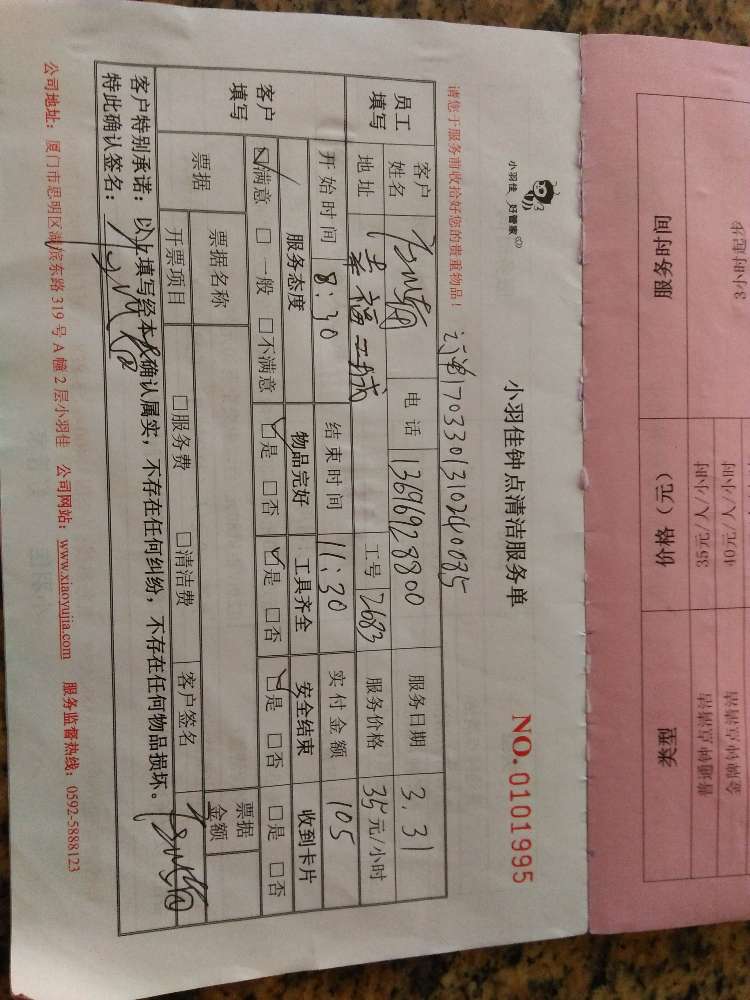 小羽佳 好管家
小羽佳钟点清洁服务单
NO. 0101995
请您于服务前收拾好您的贵重物品！
订单1703301310240085
员工填写
客户姓名
电话 13696928800
服务日期 3.31
地址 幸福工城
工号 2683
服务价格 35元/小时
开始时间 8:30
结束时间 11:30
实付金额 105
客户填写
服务态度 物品完好 工具齐全 安全结束 收到卡片
☑满意 □一般 □不满意 ☑是 □否 ☑是 □否 ☑是 □否 □是 □否
票据 票据名称 票据金额
开票项目 □服务费 □清洁费 客户签名
客户特别承诺：以上填写经本人确认属实，不存在任何纠纷，不存在任何物品损坏。
特此确认签名：
公司地址：厦门市思明区湖滨东路319号A幢2层小羽佳 公司网站：www.xiaoyujia.com 服务监督热线：0592-5888123
类型 价格（元） 服务时间
普通钟点清洁 35元/人/小时 3小时起步
金牌钟点清洁 40元/人/小时